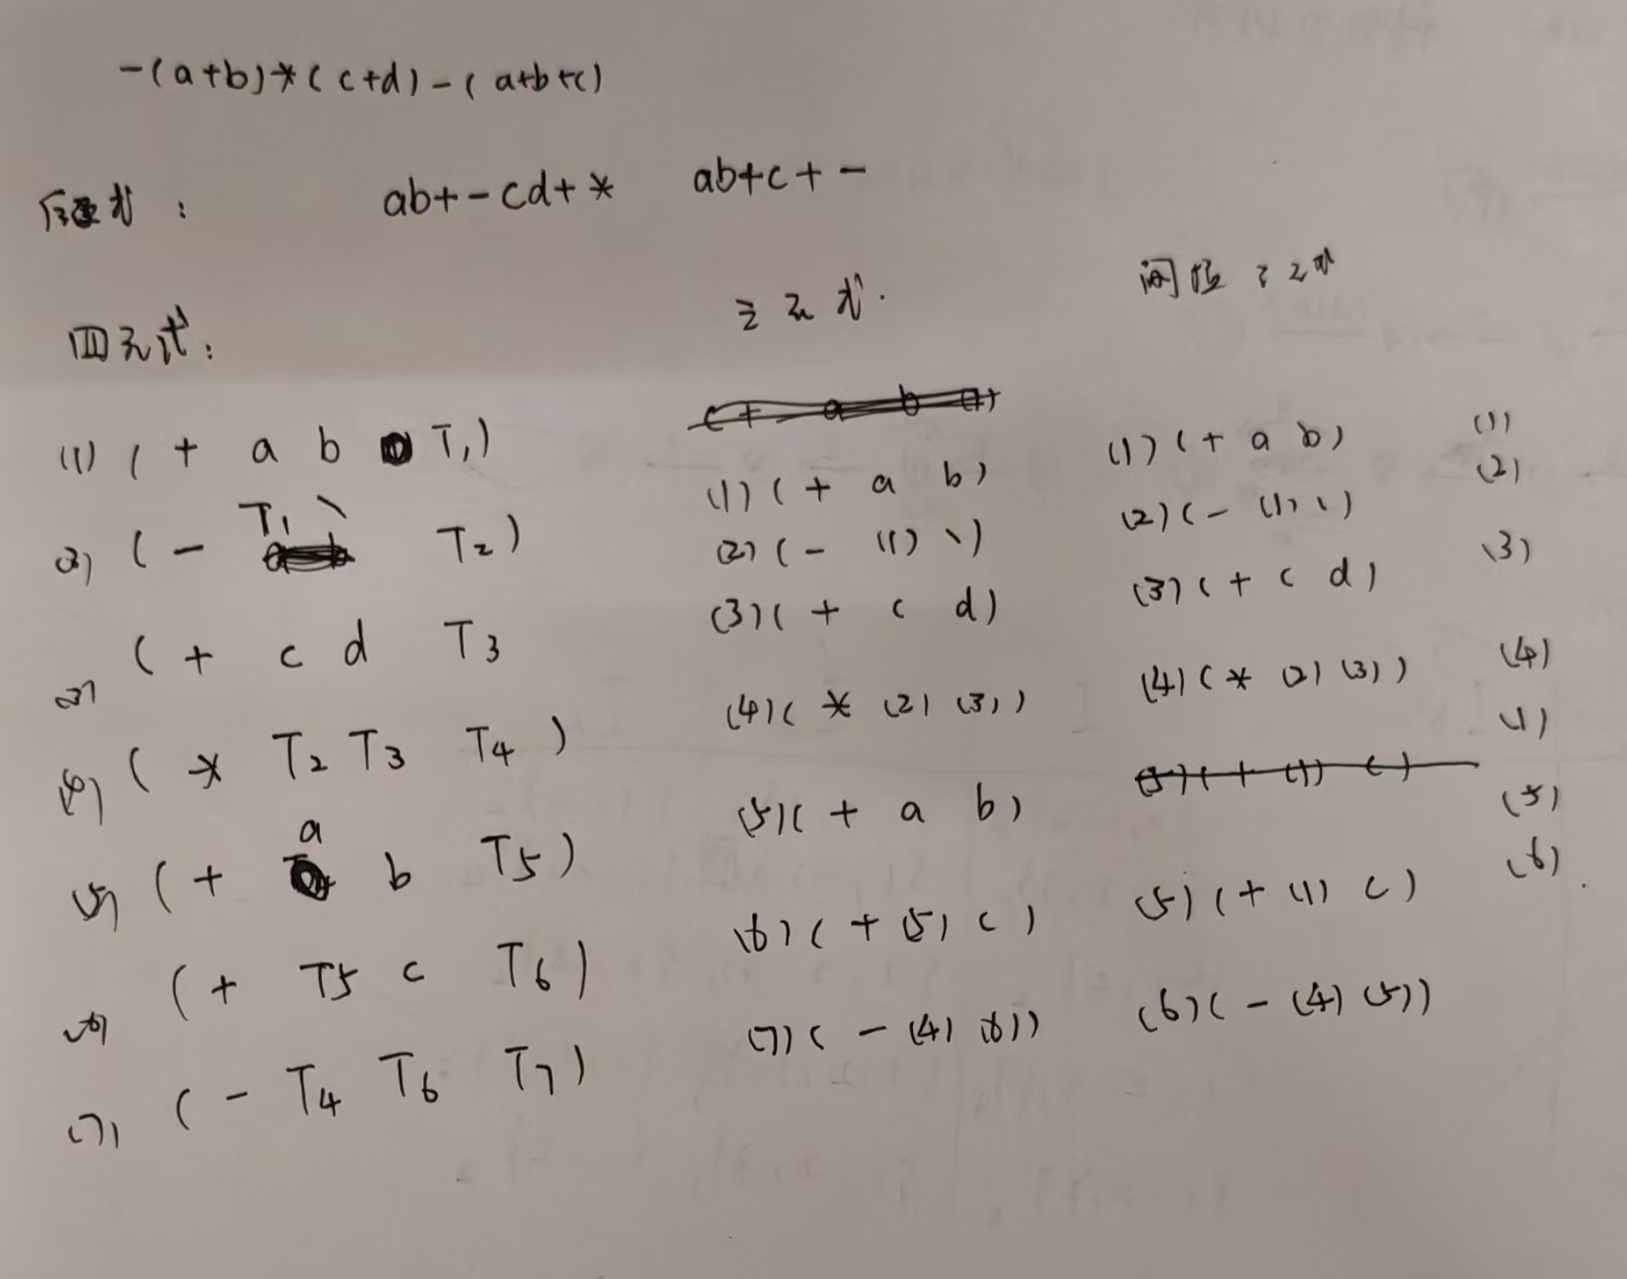 -(a+b)*(c+d)-(a+b+c)
后缀式: ab+-cd+* ab+c+-
四元式:
(1) (+ a b T₁)
(2) (- T₁ \ T₂)
(3) (+ c d T3
(4) (* T₂ T3 T4)
(5) (+ a b T5)
(6) (+ T5 c T6)
(7) (- T4 T6 T7)
三元式.
(1) (+ a b)
(2) (- (1) \)
(3) (+ c d)
(4) (* (2) (3))
(5) (+ a b)
(6) (+ (5) c)
(7) (- (4) (6))
间接三元式
(1) (+ a b)
(2) (- (1) \)
(3) (+ c d)
(4) (* (2) (3))
(5) (+ (1) c)
(5) (+ (1) c)
(6) (- (4) (5))
(1)
(2)
(3)
(4)
(1)
(5)
(6)